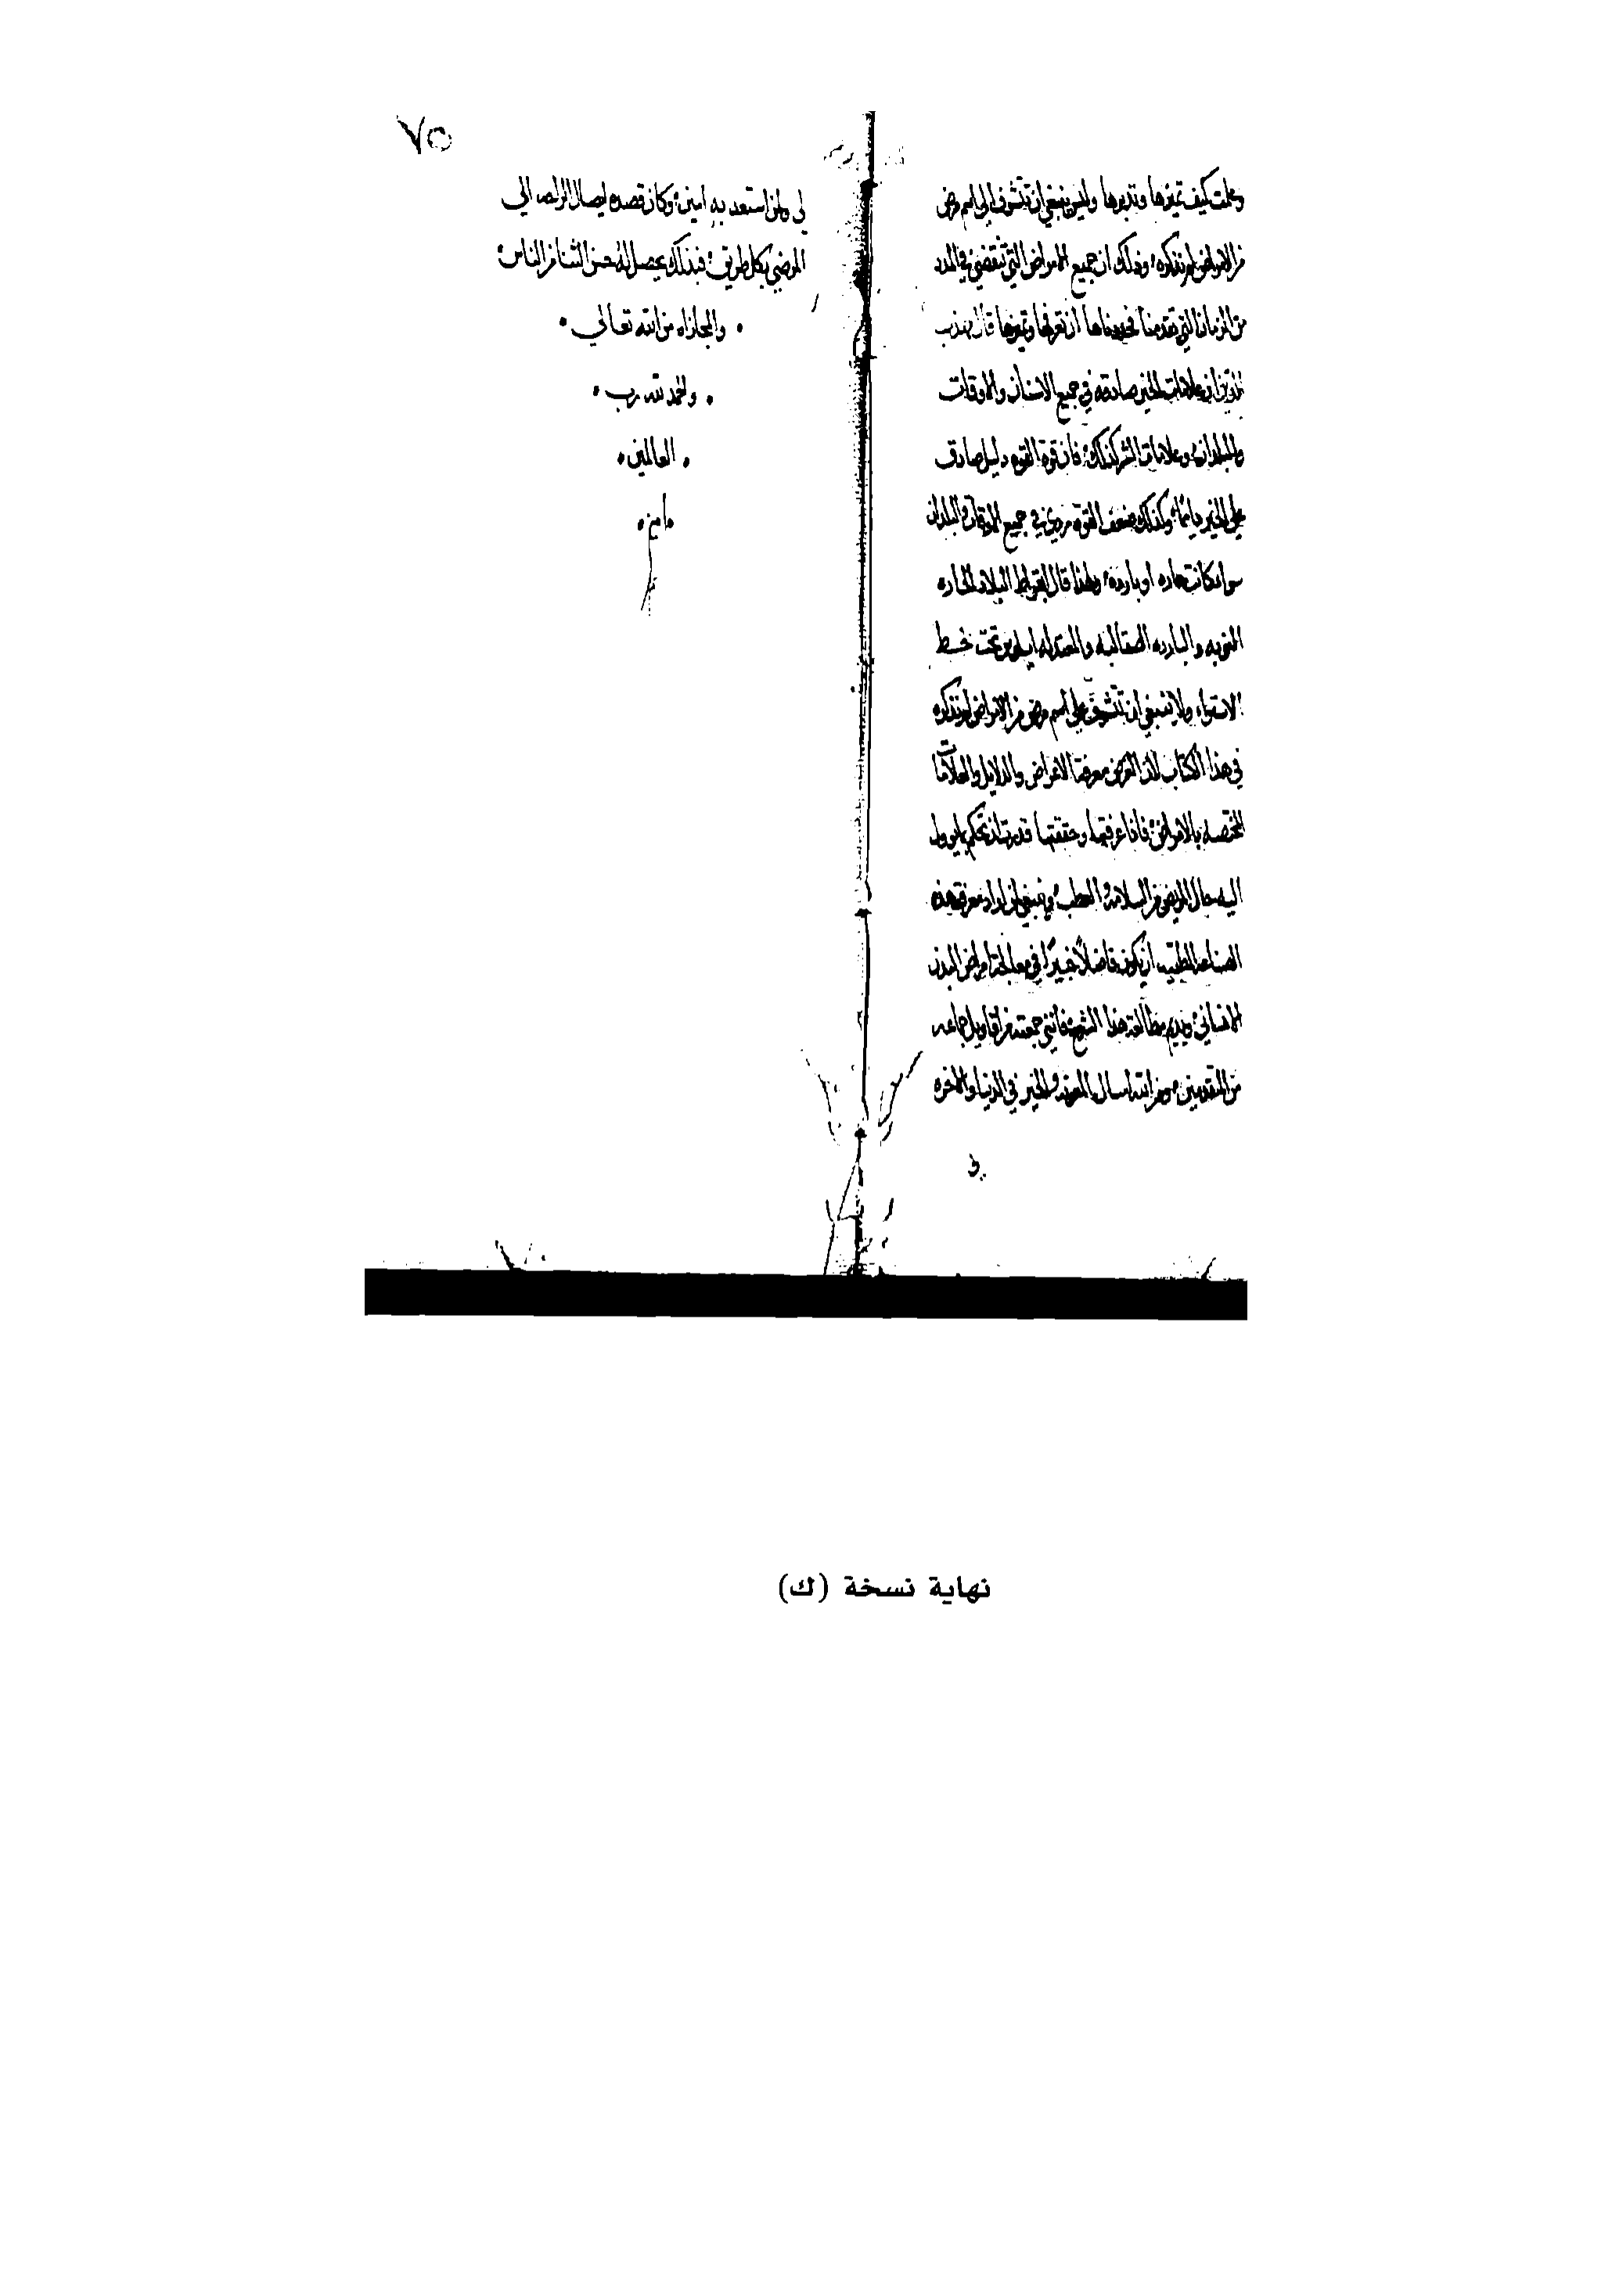 وعلمت كيف تميزها وتدبرها وليس ينبغي ان تتشوف الى اسم مرض
من الامراض لم نذكره وذلك ان جميع الامراض التي تنقضي في المدد
من الزمان التي تقدمنا فحددناها ان تعرفها وتميزها قال مهذب
الدين ان علامات الخير صادقه في جميع الاسنان والاوقات
والبلدان وعلامات الشر كذلك فان قوة القوه دليل صادق
على الخير دايمًا وكذلك ضعف القوة مردي في جميع الاوقات والبلدان
سواء كانت حاره او بارده ولهذا قال ابقراط البلاد الحاره
النوبه والبارده الصقالبه والمعتدله تحت خط
الاستواء ولا ينبغي ان تتشوق على اسم مرض من الامراض لم نذكره
في هذا الكتاب لان الغرض معرفة الاعراض والدلايل والعلامات
المختصه بالامراض فاذا عرفتها وحققتها قدرت ان تحكم بما يوول
اليه حال المريض من السلامة او العطب فينبغي لمن اراد معرفة هذه
الصناعه الطبيه ان يكون فاضلاً خبيرًا في معالجة امراض البدن
الانساني ويديم مطالعة هذا الشرح فانني جمعته من اقاويل جماعه
من المتقدمين ومن الله اسال المعونه والخير في الدنيا والاخره
لي
٧٥
لي ولمن استعد به امين وكان قصده ايصال الراحه الى
المرضى بكل طريق فبذلك يحصل له حسن الثنا من الناس
والمجازاه من الله تعالى
والحمد لله رب
العالمين
امين
نهاية نسخة (ك)